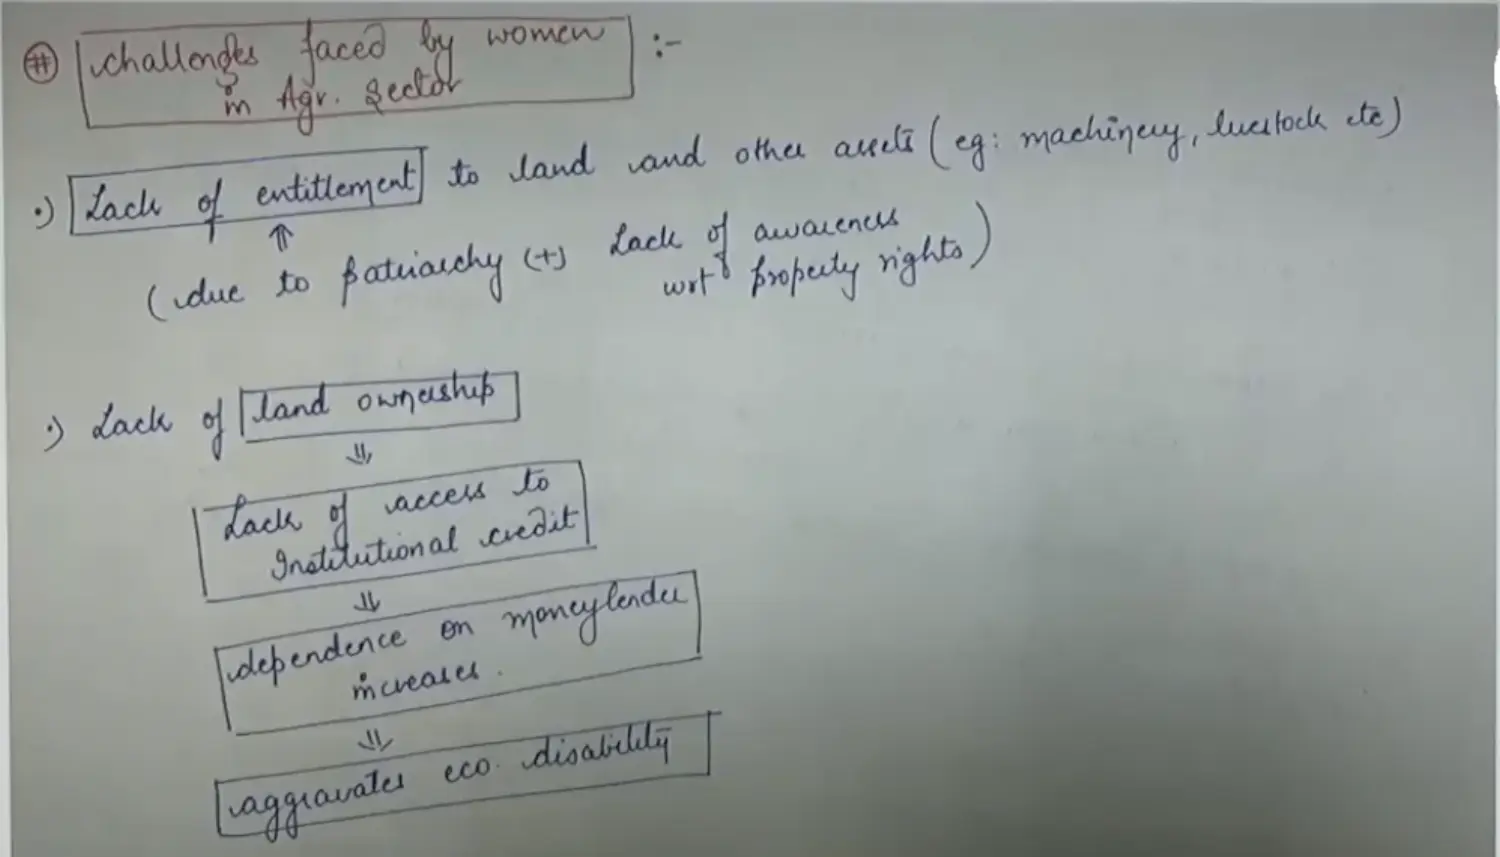 # challenges faced by women :-
in Agr. Sector
•) Lack of entitlement to land and other assets (eg: machinery, livestock etc)
(due to patriarchy (+) Lack of awareness
wrt property rights)
•) Lack of land ownership
⇓
Lack of access to
Institutional credit
⇓
dependence on moneylender
increases.
⇓
aggravates eco. disability